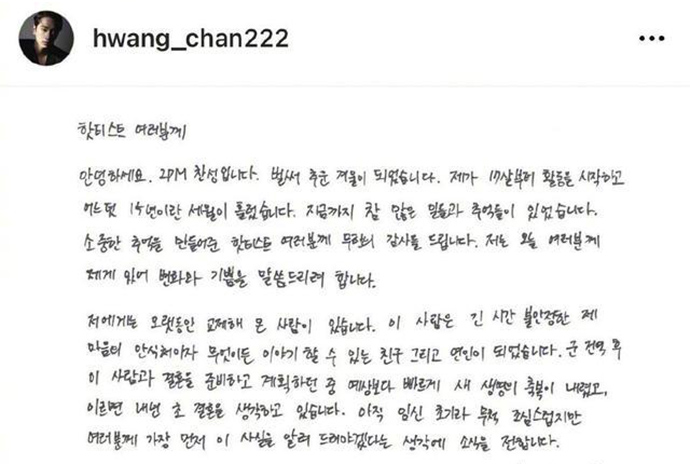 hwang_chan222
핫티스트 여러분께
안녕하세요. 2PM 찬성입니다. 벌써 추운 겨울이 되었습니다. 제가 17살부터 활동을 시작하고
어느덧 15년이란 세월이 흘렀습니다. 지금까지 참 많은 일들과 추억들이 있었습니다.
소중한 추억을 만들어준 핫티스트 여러분께 무한의 감사를 드립니다. 저는 오늘 여러분께
제게 있어 변화와 기쁨을 말씀드리려 합니다.
저에게는 오랫동안 교제해 온 사람이 있습니다. 이 사람은 긴 시간 불안정한 제
마음터 안식처이자 무엇이든 이야기 할 수 있는 친구 그리고 연인이 되었습니다. 군 전역 후
이 사람과 결혼을 준비하고 계획하던 중 예상보다 빠르게 새 생명의 축복이 내렸고,
이르면 내년 초 결혼을 생각하고 있습니다. 아직 임신 초기라 무척 조심스럽지만
여러분께 가장 먼저 이 사실을 알려 드려야겠다는 생각에 소식을 전합니다.